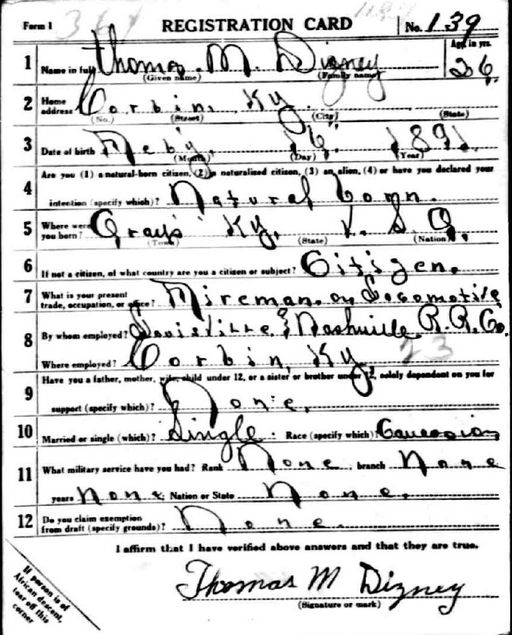 Form 1 REGISTRATION CARD No. 139
Age in yrs.
1 Name in full Thomas M. Dizney 26
(Given name) (Family name)
2 Home address Corbin, Ky.
(No.) (Street) (City) (State)
3 Date of birth Feby. 16, 1891
(Month) (Day) (Year)
Are you (1) a natural-born citizen, (2) a naturalized citizen, (3) an alien, (4) or have you declared your
4 intention (specify which)? Natural born.
5 Where were you born? Grays Ky. U. S. A.
(Town) (State) (Nation)
6 If not a citizen, of what country are you a citizen or subject? Citizen.
7 What is your present trade, occupation, or office? Fireman on Locomotive
8 By whom employed? Louisville & Nashville R. R. Co.
Where employed? Corbin, Ky. 23
Have you a father, mother, wife, child under 12, or a sister or brother under 12, solely dependent on you for
9 support (specify which)? None.
10 Married or single (which)? Single. Race (specify which)? Caucasian
11 What military service have you had? Rank None branch None
years None Nation or State None.
12 Do you claim exemption from draft (specify grounds)? None.
I affirm that I have verified above answers and that they are true.
Thomas M Dizney
(Signature or mark)
If person is of
African descent,
tear off this
corner